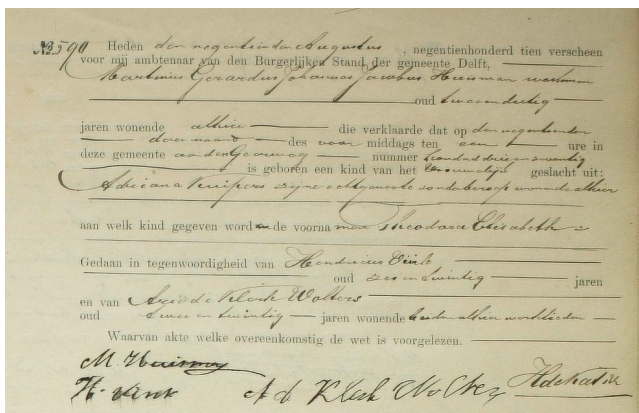 No. 590 Heden den negentienden Augustus, negentienhonderd tien verscheen
voor mij ambtenaar van den Burgerlijken Stand der gemeente Delft,
Martinus Gerardus Johannes Jacobus Huisman werkman
oud twee en dertig
jaren wonende alhier die verklaarde dat op den negentienden
dezer maand des voor middags ten een ure in
deze gemeente aan den Geerweg nummer honderd drie en zeventig
is geboren een kind van het vrouwelijk geslacht uit:
Adriana Kuipers zijne echtgenoote zonder beroep wonende alhier
aan welk kind gegeven worden de voornamen Theodora Elisabeth
Gedaan in tegenwoordigheid van Hendricus Vink
oud zes en twintig jaren
en van Arie de Klerk Wolters
oud twee en twintig jaren wonende beiden alhier werklieden
Waarvan akte welke overeenkomstig de wet is voorgelezen.
M. Huisman
H. Vink A de Klerk Wolters